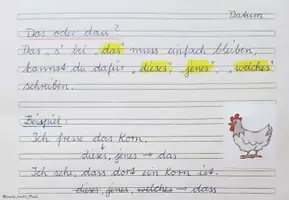 Datum
Das oder dass?
Das "s" bei "das" muss einfach bleiben,
kannst du dafür "dieses", "jenes", "welches"
schreiben.
Beispiel:
Ich fresse das Korn.
dieses, jenes → das
Ich sehe, dass dort ein Korn ist.
dieses, jenes, welches → dass